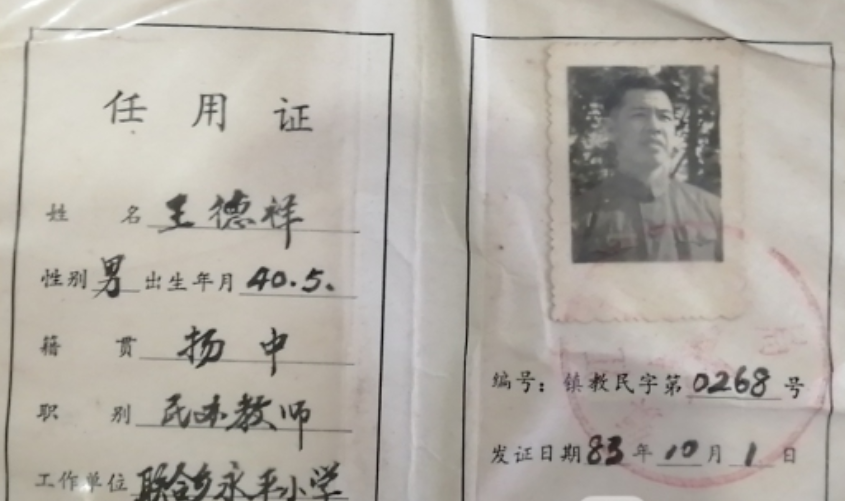 任用证
姓名 王德祥
性别 男 出生年月 40.5.
籍贯 扬中
职别 民办教师
工作单位 联合乡永平小学
编号：镇教民字第0268号
发证日期 83年10月1日